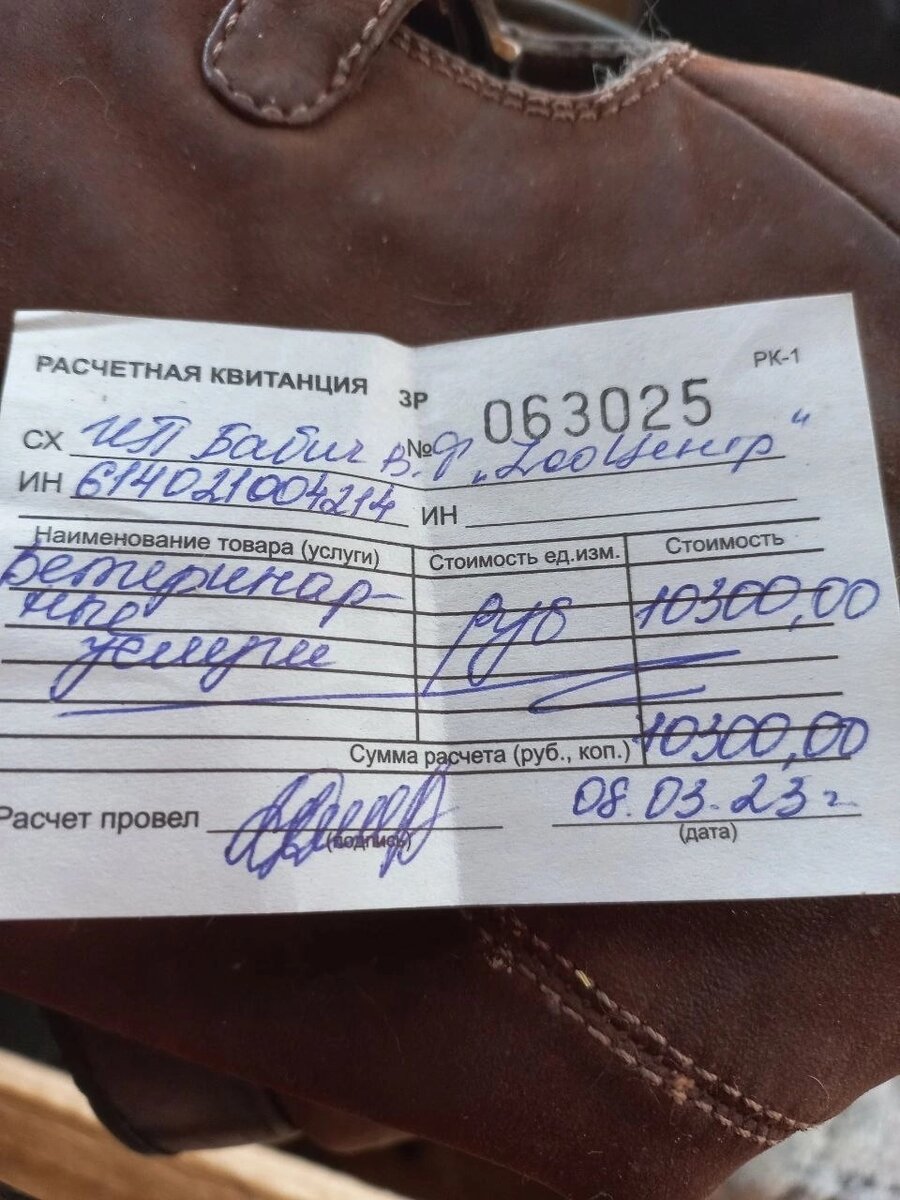 РАСЧЕТНАЯ КВИТАНЦИЯ ЗР 063025 РК-1
СХ ИП Бабич В.Ф. № „ЗооЦентр"
ИН 614021004214 ИН
Наименование товара (услуги) Стоимость ед.изм. Стоимость
Ветеринар- руб 10300,00
ные
услуги
Сумма расчета (руб., коп.) 10300,00
Расчет провел 08.03.23 г.
(подпись) (дата)